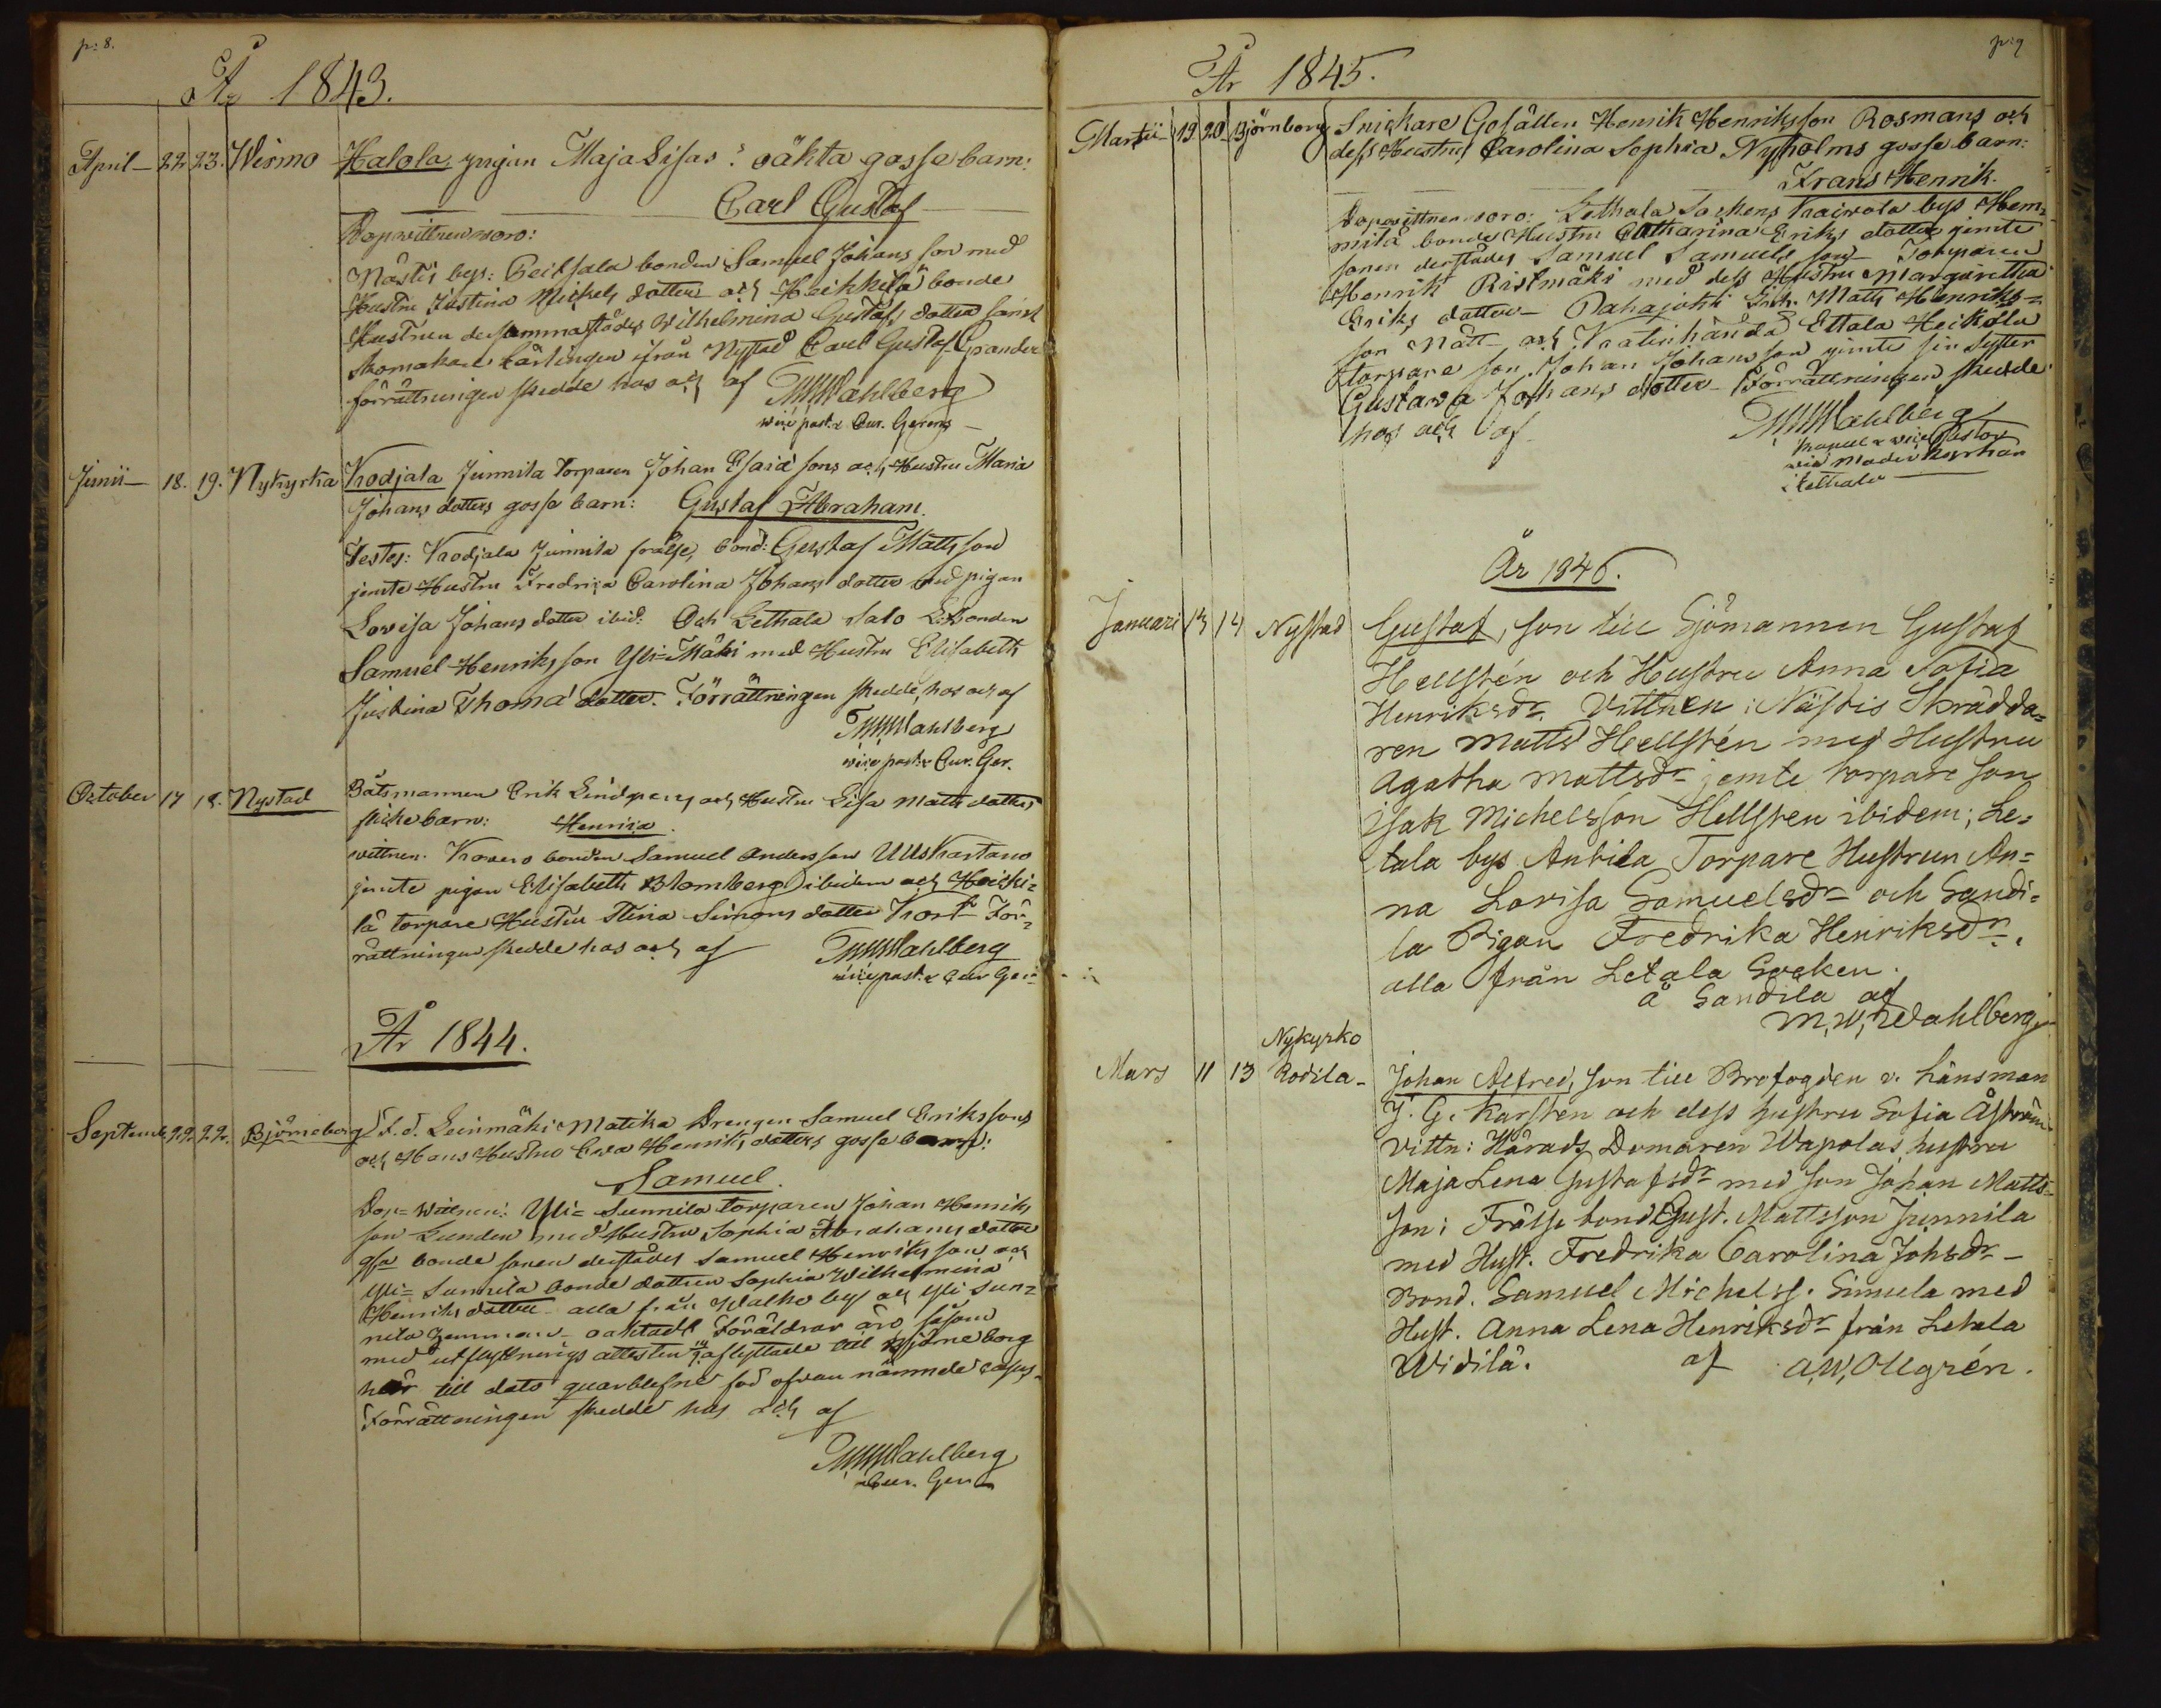 p: 8.
År 1843.
April 22 23. Wirmo Halola pigan Maja Lisas oäkta gosse barn:
Carl Gustaf
Dopwittnen woro:
Nästis bys: Peitsala bonden Samuel Johans son med
Hustru Justina Mickels dotter och Heikkilä bonde
Hustrun dersammastädes Wilhelmina Gustafs dotter samt
skomakare Lärlingen ifrån Nystad Carl Gustaf Grander
förrättningen skedde hos och af MWahlberg
vice past. & Cur. Gerens
Junii 18. 19. Nykyrka Krodjala Junnila Torparen Johan Esaiæ sons och Hustru Maria
Johans dotters gosse barn: Gustaf Abraham.
Testes: Krodjala Junnila frälse bond: Gustaf Matts son
jemte Hustru Fredrica Carolina Johans dotter med pigan
Lovisa Johans dotter ibid: Och Lethala Salo bonden
Samuel Henriks son Yli-Mäki med Hustru Elisabeth
Justina Thomæ dotter. Förrättningen skedde, hos och af
MWahlberg
vice past. & Cur. Ger.
October 17 18. Nystad Båtsmannen Erik Lindperg och Hustru Lisa Matts dotters
flicke barn: Henrica.
wittnen. Krovero bonden Samuel Andersson Uuskartano
jemte pigan Elisabeth Blomberg ibidem och Heiki-
lä torpare Hustru Stina Simons dotter Kort För-
rättningen skedde hos och af MWahlberg
vice past. & Cur Ger
År 1844.
Septemb. 22. 22. Björneborg F. d. Leinmäki Matika Drengen Samuel Erikssons
och Hans Hustru Eva Henriks dotters gosse barn:
Samuel.
Dop-Wittnen: Yli- Sunnila torparen Johan Henriks
son Lunden med Hustru Sophia Abrahams dotter
bonde sonen derstädes Samuel Henriks son och
Yli- Sunnila bonde dottren Sophia Wilhelmina
Henriks dotter alla från Walko by och Yli Sun-
nila hemman oaktadt Föräldrar äro såsom
med utflyttnings attesten aflyttade till Björneborg
här till dato quarblefne
Förrättningen skedde hos och af
MWahlberg
Cur. Gerens
p: 9
År 1845.
Martii 19 20 Björnborg Snickare Gesällen Henrik Henriksson Rosmans och
dess Hustrus Carolina Sophia Nyholms gosse barn:
Frans Henrik.
Dopvittnen woro: Lethala Sockens Kaivola bys Hem-
milä bonde Hustru Catharina Eriks dotter jemte
sonen derstädes Samuel Samuels son Torparen
Henrik Ristmäki med dess Hustru Margaretha
Eriks dotter Pahajoki Matts Henriks-
son Nätt och Kratinhända Ettala Heikola
torpare son Johan Johansson jemte sin Syster
Gustava Johans dotter Förrättningen skedde
hos och af MWahlberg
vice Pastor
vid Moder Kyrkan
i Lethala
År 1846.
Januari 13 14 Nystad Gustaf, son till Sjömannen Gustaf
Hellstén och Hustru Anna Sofia
Henriksdr. Vittnen: Nästis Skrädda-
ren Matts Hellstén med Hustru
Agatha Mattsdr jemte torpare son
Isak Michelsson Hellsten ibidem; Le-
tala bys Antila Torpare Hustrun An-
na Lovisa Samuelsdr och Sandi-
la Pigan Fredrika Henriksdr.
alla från Letala Socken.
å Sandila af
M. W. Wahlberg
Mars 11 13 Nykyrko
Rodila Johan Alfred, son till Brofogden v. Länsman
J. G. Karsten och dess hustru Sofia Åström.
Vittn: Härads Domaren Wapolas hustru
Maja Lena Gustafsdr med son Johan Matts-
son; Frälse bond Gust. Mattsson Junnila
med Hust. Fredrika Carolina Johsdr
Bond. Samuel Michelss. Simula med
Hust. Anna Lena Henriksdr från Letala
Widilä. af A. W. Ollgrén.